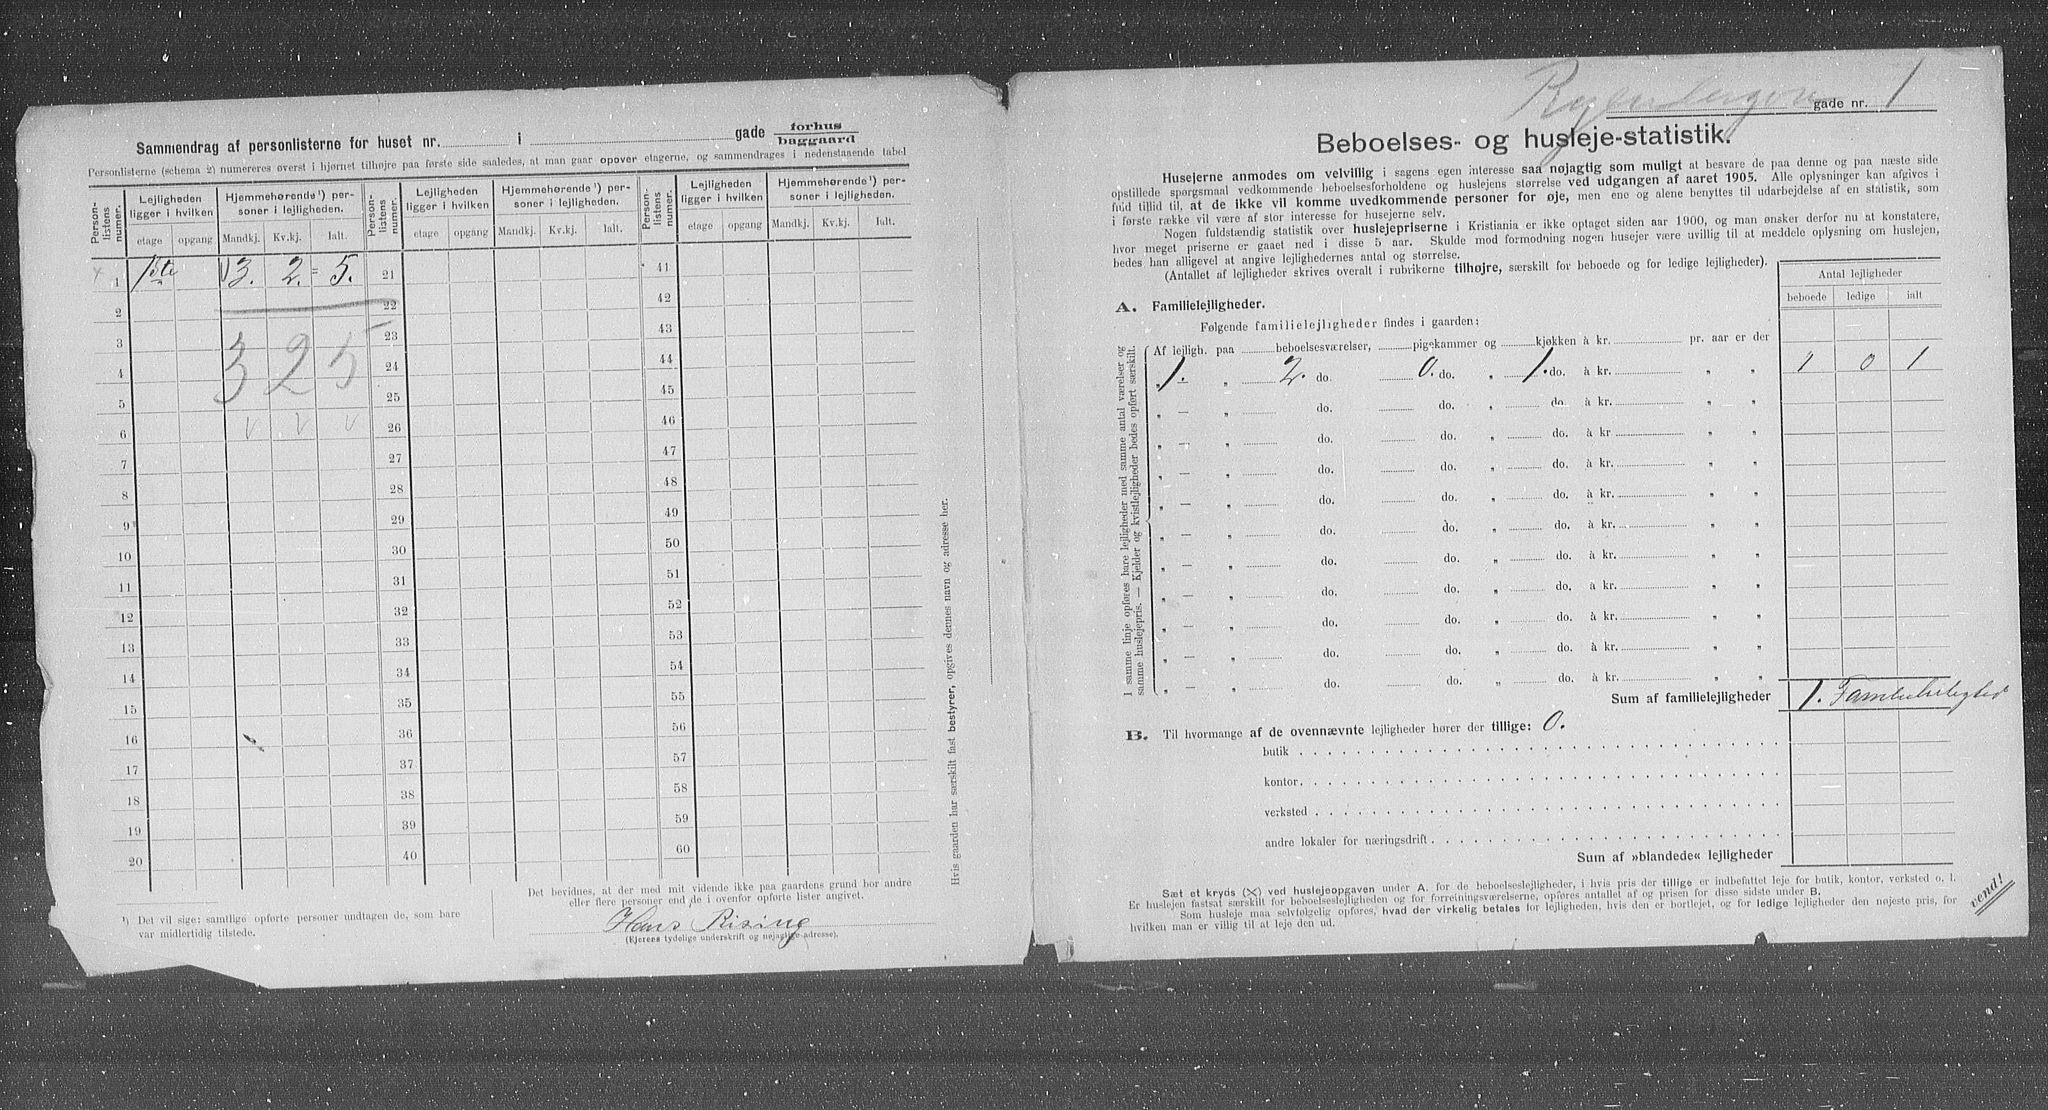 Sammendrag af personlisterne for huset nr. i gade forhus baggaard
Personlisterne (schema 2) numereres øverst i hjørnet tilhøjre paa første side saaledes, at man gaar opover etagerne, og sammendrages i nedenstaaende tabel
Personlistens numer. Lejligheden ligger i hvilken Hjemmehørende¹) personer i lejligheden. Personlistens numer. Lejligheden ligger i hvilken Hjemmehørende¹) personer i lejligheden. Personlistens numer. Lejligheden ligger i hvilken Hjemmehørende¹) personer i lejligheden.
etage opgang Mandkj. Kv.kj. Ialt. etage opgang Mandkj. Kv.kj. Ialt. etage opgang Mandkj. Kv.kj. Ialt.
1 1ste 3. 2. = 5. 21 41
2 22 42
3 23 43
3 2 5
4 24 44
5 25 45
6 v v v 26 46
7 27 47
8 28 48
9 29 49
10 30 50
11 31 51
12 32 52
13 33 53
14 34 54
15 35 55
16 36 56
17 37 57
18 38 58
19 39 59
20 40 60
¹) Det vil sige: samtlige opførte personer undtagen de, som bare
var midlertidig tilstede.
Det bevidnes, at der med mit vidende ikke paa gaardens grund bor andre
eller flere personer end de i ovenfor opførte lister angivet.
Hans Rising
(Ejerens tydelige underskrift og nøjagtige adresse).
Hvis gaarden har særskilt fast bestyrer, opgives dennes navn og adresse her.
gade nr. 1
Beboelses- og husleje-statistik.
Husejerne anmodes om velvillig i sagens egen interesse saa nøjagtig som muligt at besvare de paa denne og paa næste side
opstillede spørgsmaal vedkommende beboelsesforholdene og huslejens størrelse ved udgangen af aaret 1905. Alle oplysninger kan afgives i
fuld tillid til, at de ikke vil komme uvedkommende personer for øje, men ene og alene benyttes til udarbejdelse af en statistik, som
i første række vil være af stor interesse for husejerne selv.
Nogen fuldstændig statistik over huslejepriserne i Kristiania er ikke optaget siden aar 1900, og man ønsker derfor nu at konstatere,
hvor meget priserne er gaaet ned i disse 5 aar. Skulde mod formodning nogen husejer være uvillig til at meddele oplysning om huslejen,
bedes han alligevel at angive lejlighedernes antal og størrelse.
(Antallet af lejligheder skrives overalt i rubrikerne tilhøjre, særskilt for beboede og for ledige lejligheder).
Antal lejligheder
beboede ledige ialt
A. Familielejligheder.
Følgende familielejligheder findes i gaarden:
Af lejligh. paa beboelsesværelser, pigekammer og kjøkken à kr. pr. aar er der
„ 1. — „ 2. do. 0. do. „ 1. do. à kr. „ „ 1 0 1
„ — „ do. do. „ do. à kr. „ „
„ — „ do. do. „ do. à kr „ „
„ — „ do. do. „ do. à kr. „ „
„ — „ do. do. „ do. à kr. „ „
„ — „ do. do. „ do. à kr. „ „
„ — „ do. do. „ do. à kr. „ „
„ — „ do. do. „ do. à kr. „ „
„ — „ do. do. „ do. à kr. „ „
„ — „ do. do. „ do. à kr. „ „
„ — „ do. do. „ do. à kr. „ „
I samme linje opføres bare lejligheder med samme antal værelser og
samme huslejepris. — Kjelder og kvistlejligheder bedes opført særskilt.
Sum af familielejligheder 1.
B. Til hvormange af de ovennævnte lejligheder hører der tillige: 0.
butik
kontor
verksted
andre lokaler for næringsdrift
Sum af »blandede« lejligheder
Sæt et kryds (X) ved huslejeopgaven under A. for de beboelseslejligheder, i hvis pris der tillige er indbefattet leje for butik, kontor, verksted o. l.
Er huslejen fastsat særskilt for beboelseslejligheden og for forreiningsværelserne, opføres antallet af og prisen for disse sidste under B.
Som husleje maa selvfølgelig opføres, hvad der virkelig betales for lejligheden, hvis den er bortlejet, og for ledige lejligheder den nøjeste pris, for
hvilken man er villig til at leje den ud.
vend!